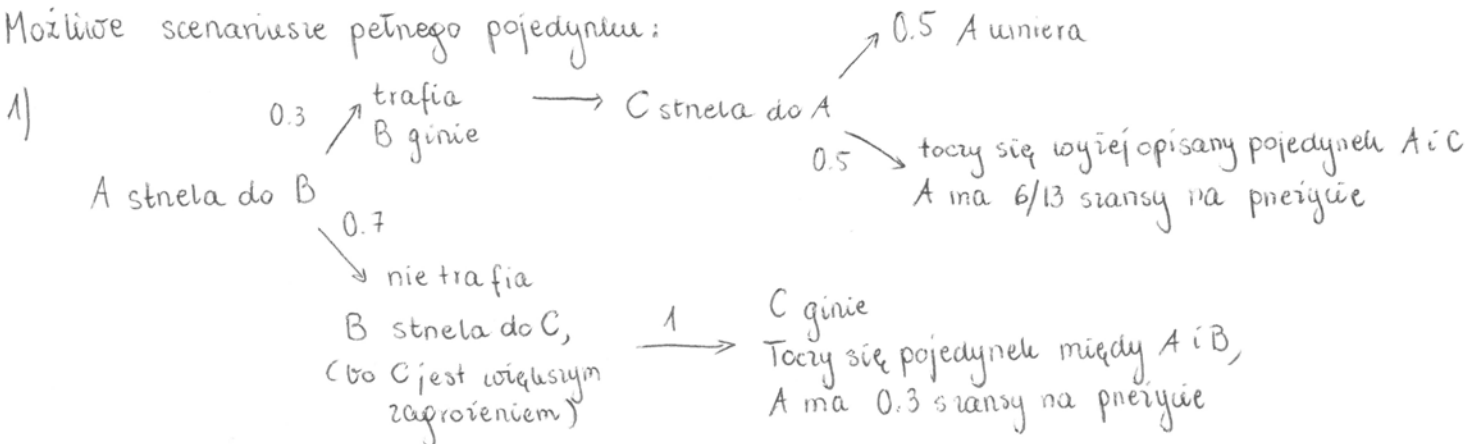 Możliwe scenariusze pełnego pojedynku:
1)
0.3
trafia
B ginie
C strzela do A
0.5 A umiera
0.5
toczy się wyżej opisany pojedynek A i C
A ma 6/13 szansy na przeżycie
A strzela do B
0.7
nie trafia
B strzela do C,
(bo C jest większym
zagrożeniem)
1
C ginie
Toczy się pojedynek między A i B,
A ma 0.3 szansy na przeżycie